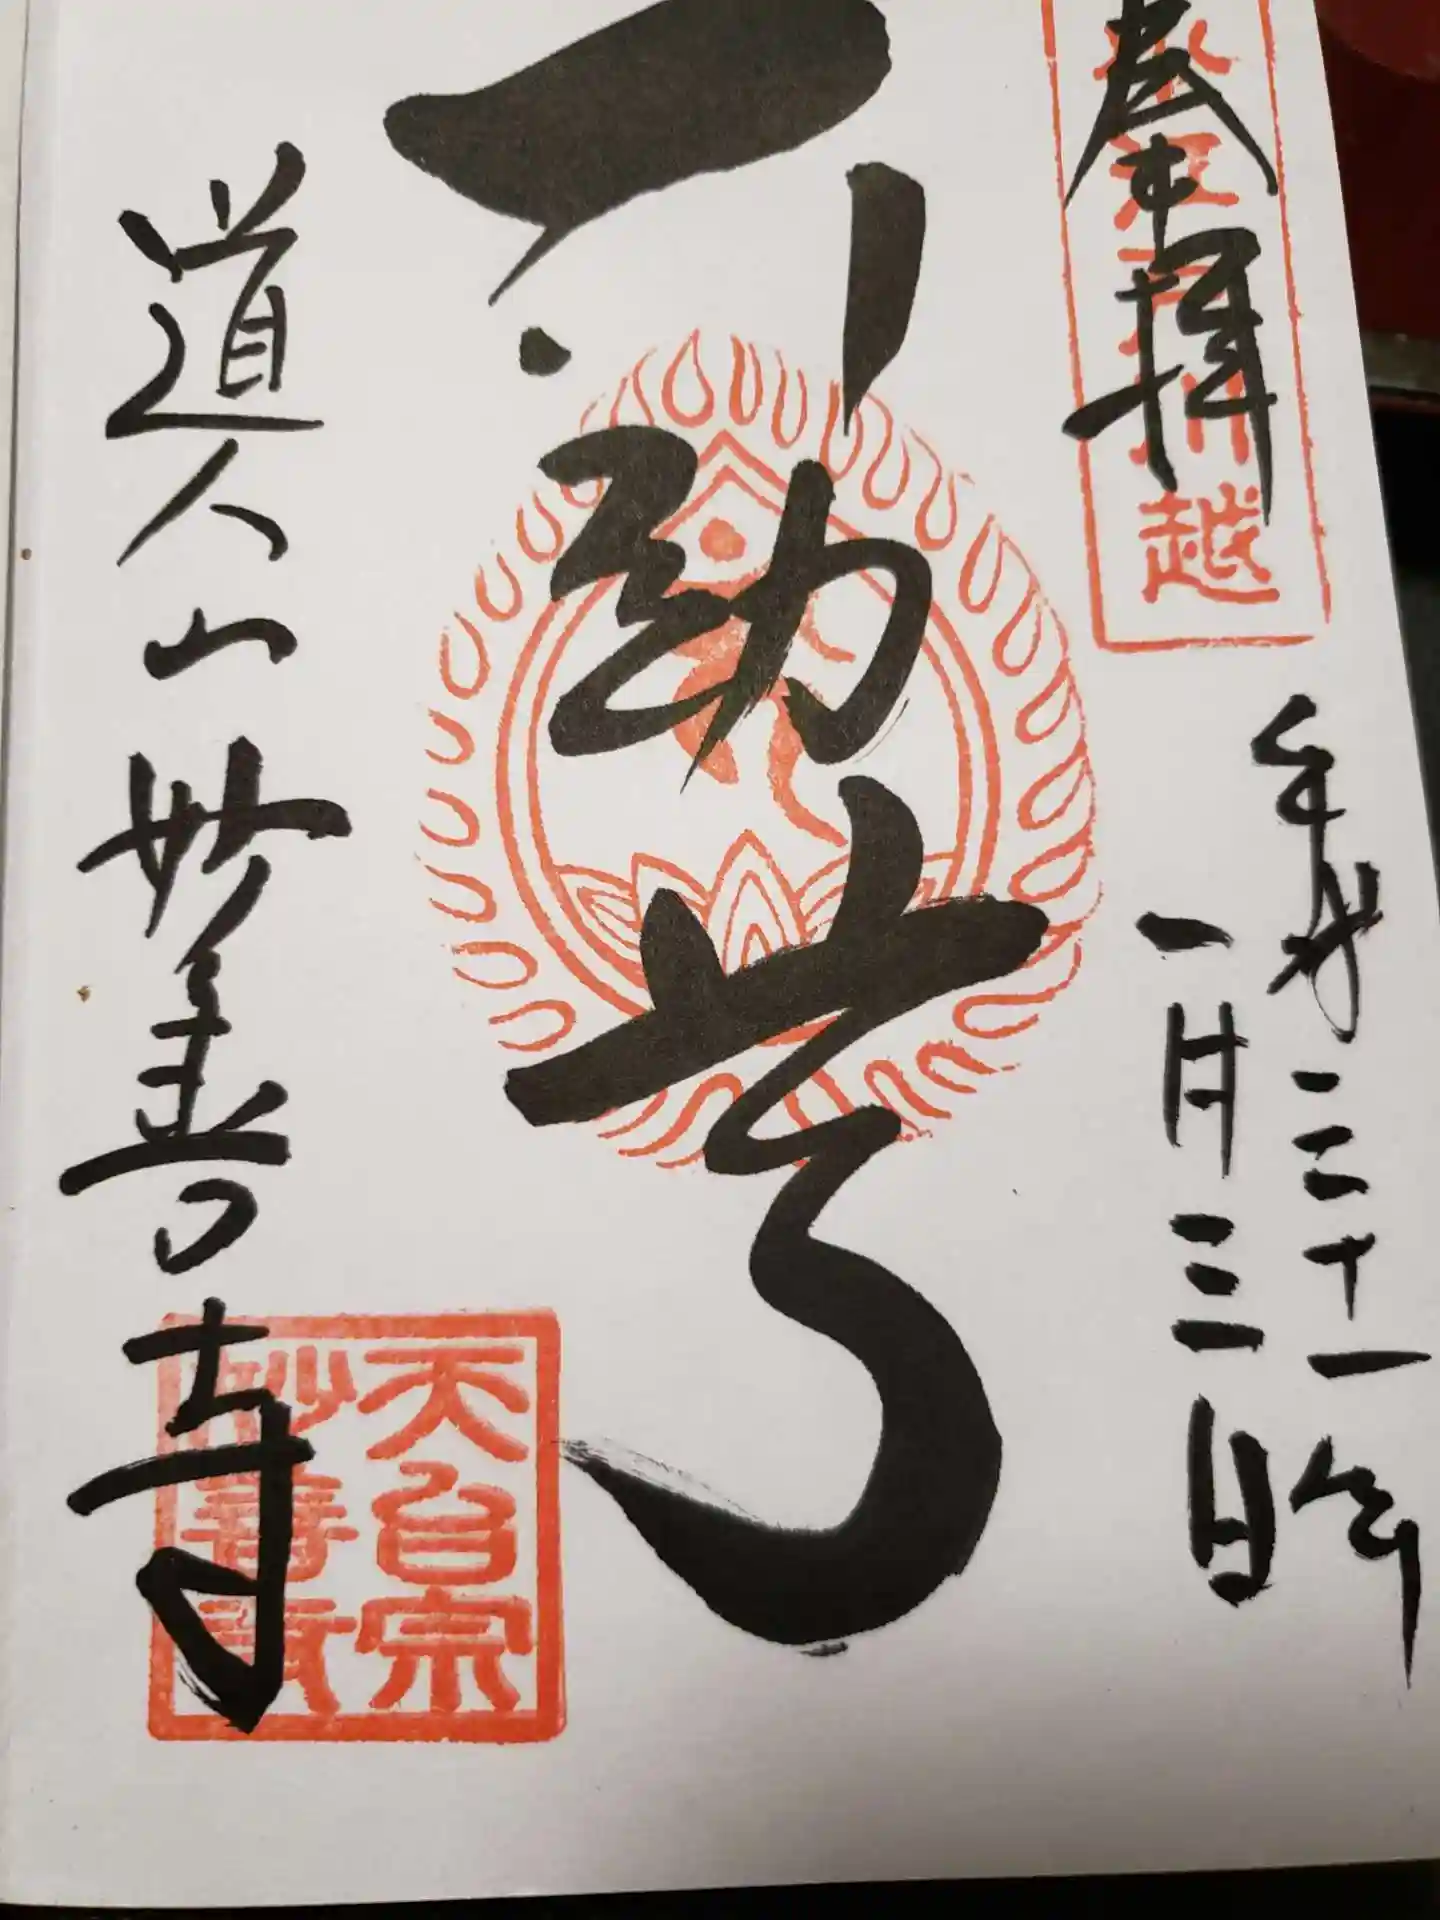 奉拝
越
平成三十一年
一月三日
不動尊
道人山妙善寺
天台宗
妙善寺